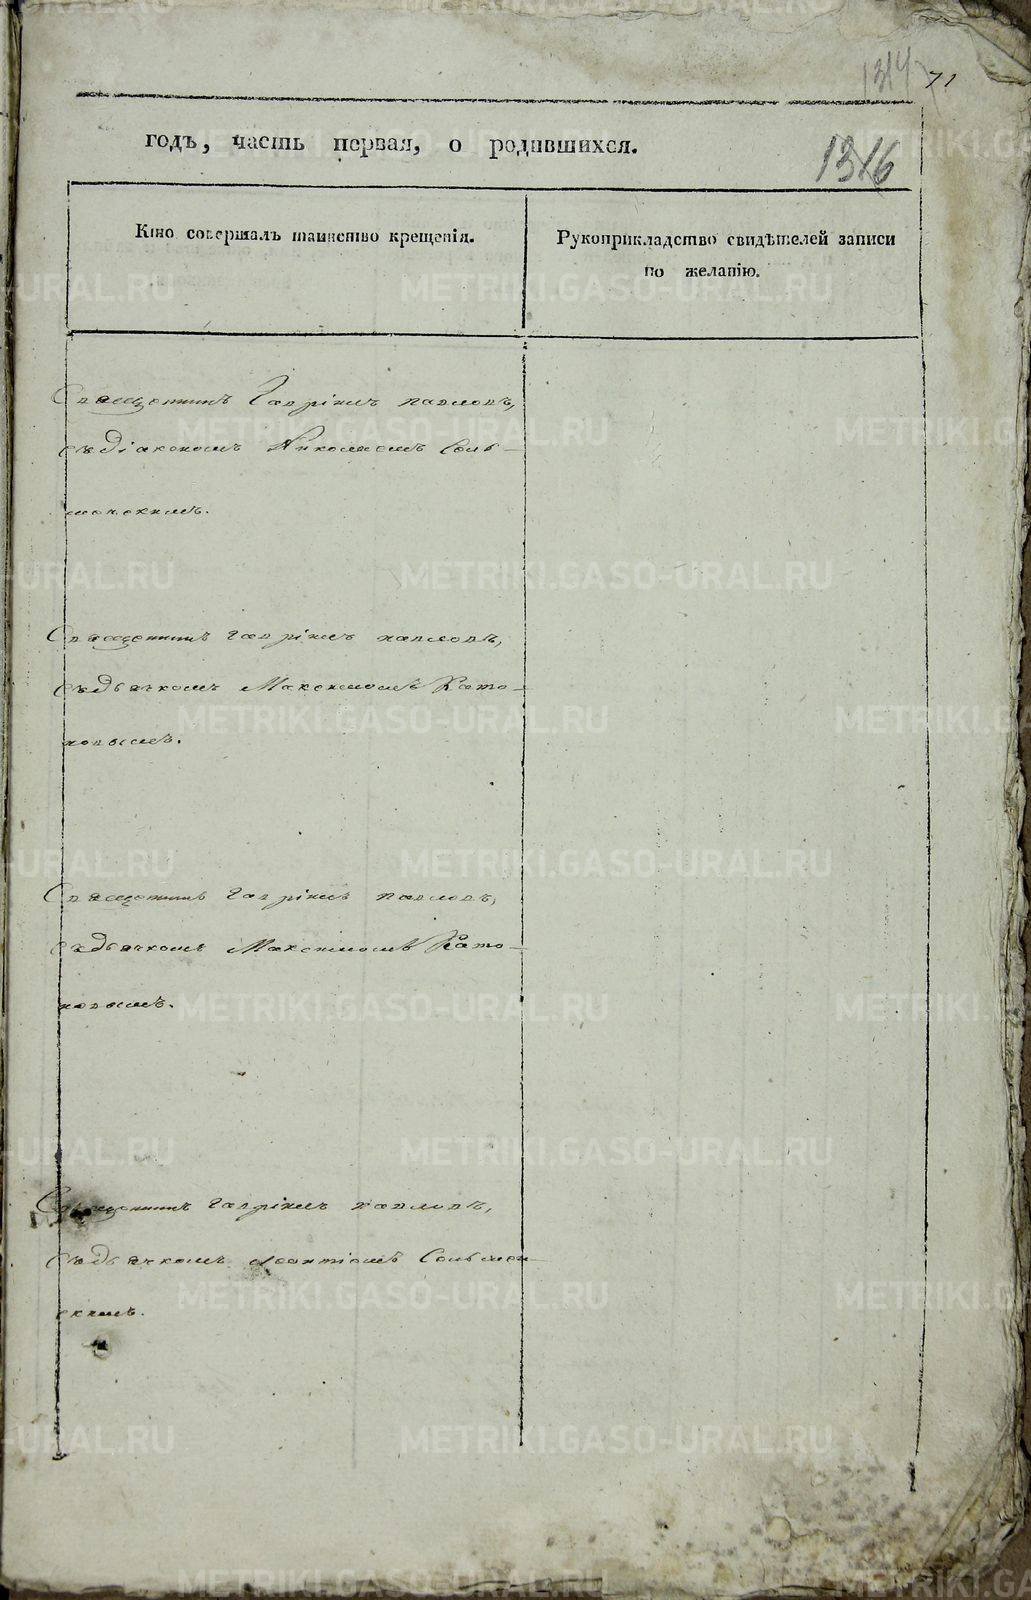 1314
71
годъ, часть первая, о родившихся.
1316
Кто совершалъ таинство крещенія.
Рукоприкладство свидѣтелей записи
по желанію.
Священникъ Гавріилъ Павловъ,
съ діакономъ Николаемъ
Священникъ Гавріилъ Павловъ,
съ дьячкомъ Максимомъ Като-
новымъ.
Священникъ Гавріилъ Павловъ,
съ дьячкомъ Максимомъ Като-
новымъ.
Священникъ Гавріилъ Павловъ,
съ дьячкомъ Леонтіемъ
скимъ.
METRIKI.GASO-URAL.RU